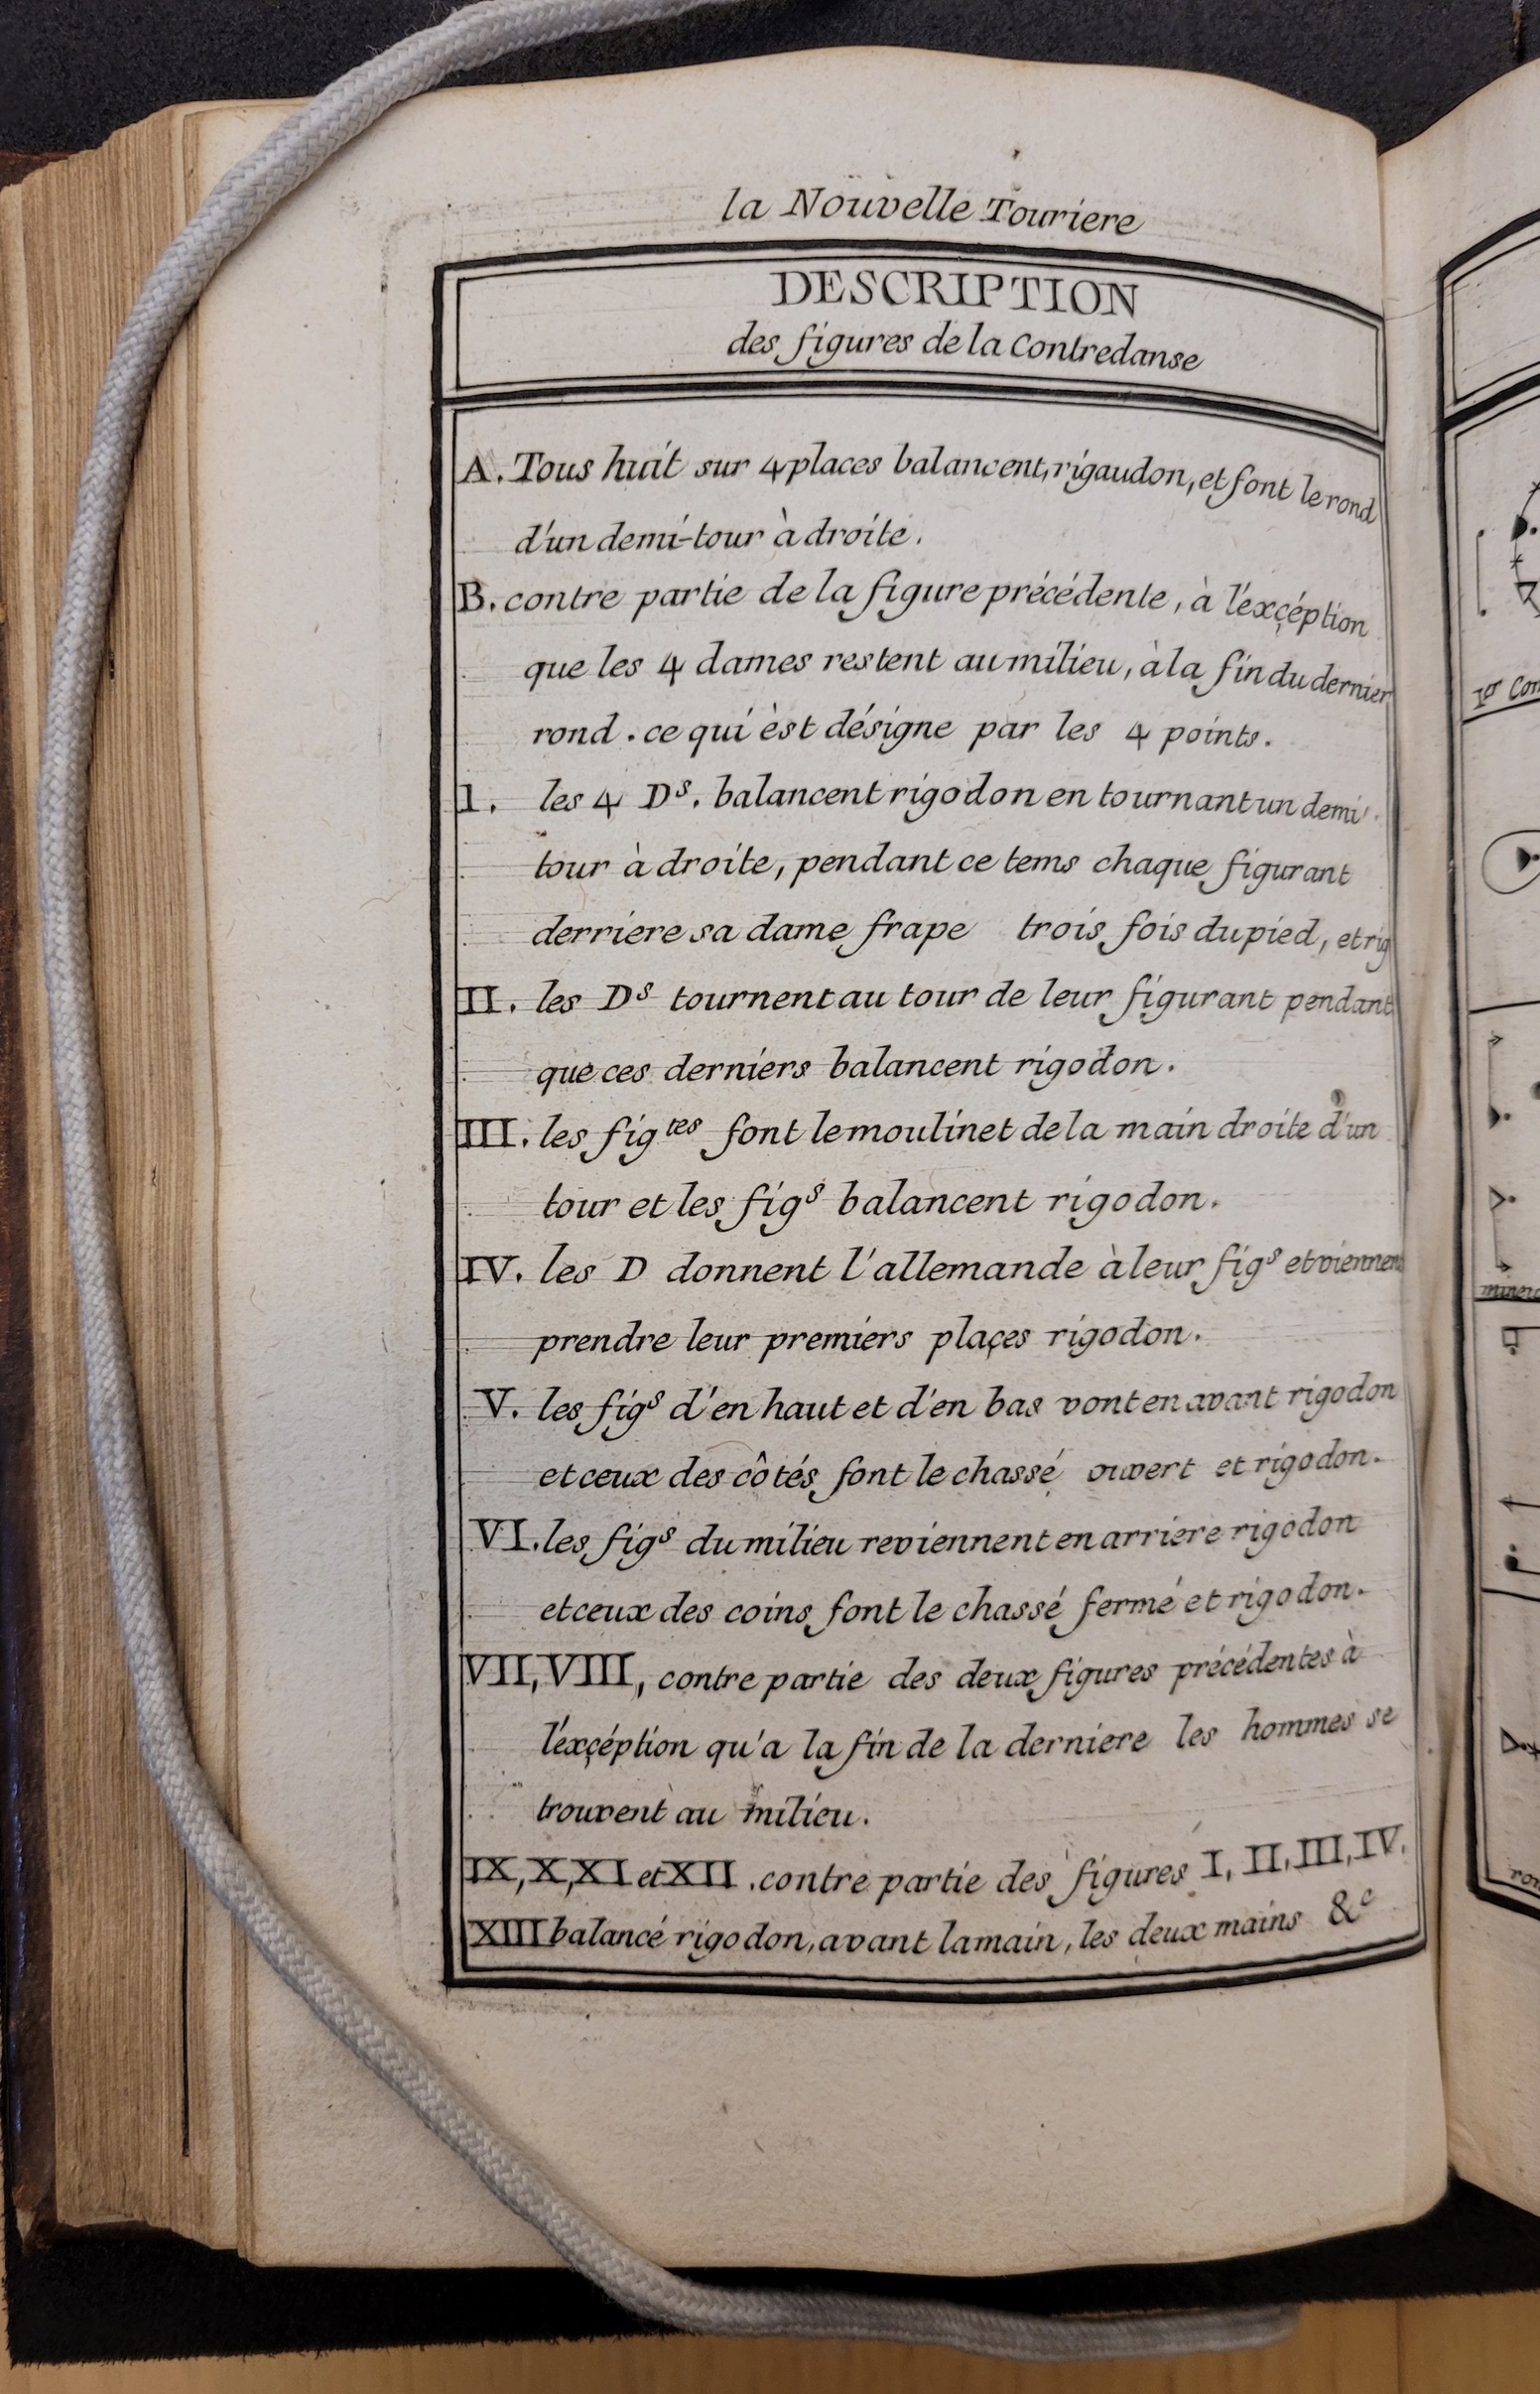 la Nouvelle Touriere
DESCRIPTION
des figures de la Contredanse
A. Tous huit sur 4 places balancent, rigaudon, et font le rond
d'un demi-tour à droite.
B. contre partie de la figure précédente, à l'exçéption
que les 4 dames restent au milieu, à la fin du dernier
rond. ce qui èst désigne par les 4 points.
I. les 4 Dˢ. balancent rigodon en tournant un demi
tour à droite, pendant ce tems chaque figurant
derriere sa dame frape trois fois du pied, et rig
II. les Dˢ tournent au tour de leur figurant pendant
que ces derniers balancent rigodon.
III. les figᵗᵉˢ font le moulinet de la main droite d'un
tour et les figˢ balancent rigodon.
IV. les D donnent l'allemande à leur figˢ et viennent
prendre leur premiers plaçes rigodon.
V. les figˢ d'en haut et d'en bas vont en avant rigodon
et ceux des côtés font le chassé ouvert et rigodon.
VI. les figˢ du milieu reviennent en arriere rigodon
et ceux des coins font le chassé fermé et rigodon.
VII, VIII, contre partie des deux figures précédentes à
l'exçéption qu'a la fin de la derniere les hommes se
trouvent au milieu.
IX, X, XI et XII. contre partie des figures I, II, III, IV.
XIII balancé rigodon, avant la main, les deux mains &ᶜ